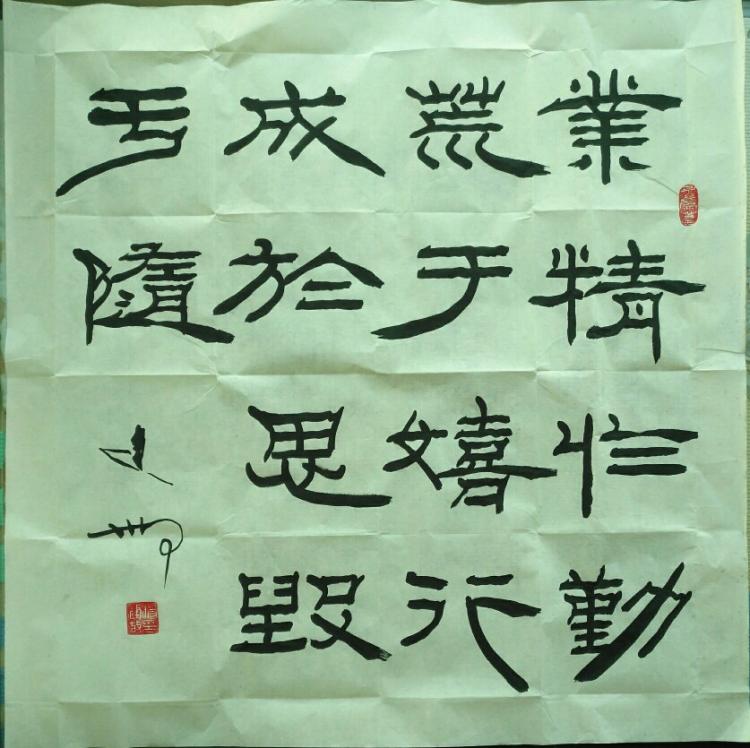 業精於勤
荒于嬉行
成於思毁
亏隨